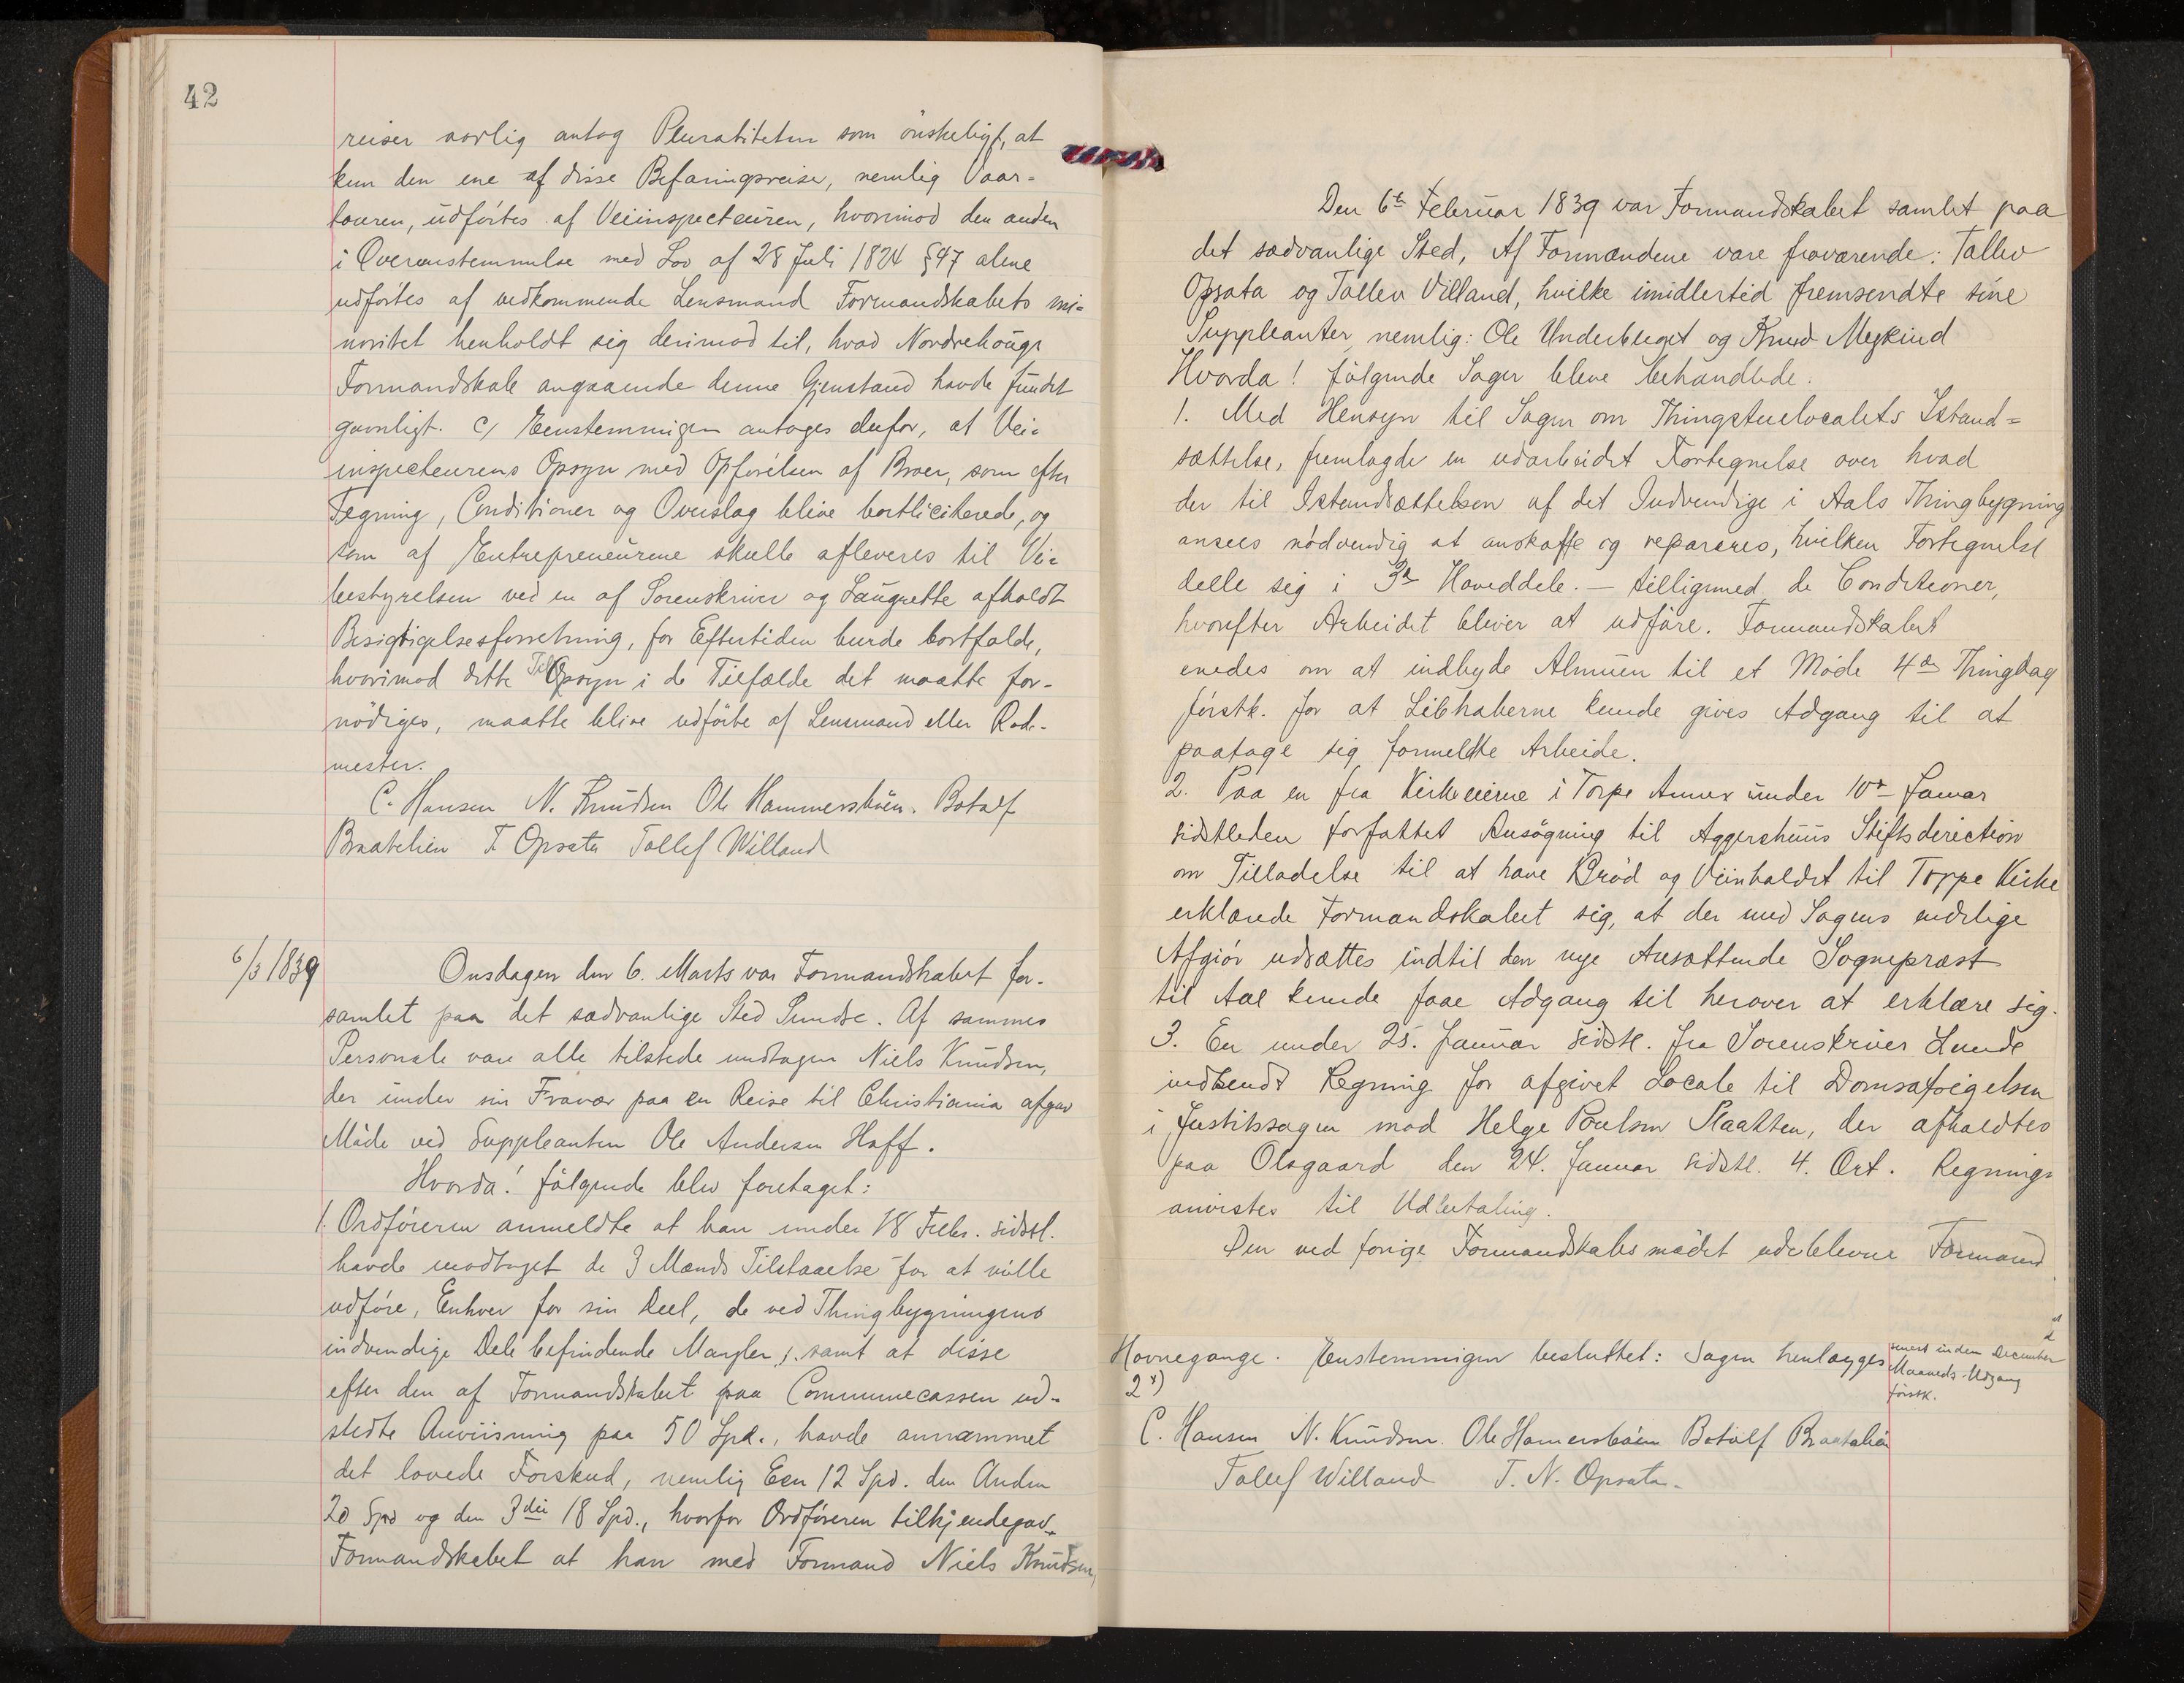 42
reiser aarlig antog Pluraliteten som ønskeligt, at
kun den ene af disse Befaringsreiser, nemlig Vaar-
touren, üdførtes af Veiinspecteüren, hvorimod den anden
i Overeenstemmelse med Lov af 28 Juli 1824 §47 alene
udførtes af vedkommende Lensmand Formandskabets mi-
noritet henholdt sig derimod til, hvad Nordrehougs
Formandskab angaaende denne Gjenstand havde fundet
gavnligt. c/ Eenstemmigen antages derfor, at Vei-
inspecteurens Opsyn med Opførelsen af Broer, som efter
Tegning, Conditioner og Overslag blive bortliciterede, og
som af Entrepreneürene skulle afleveres til Vei-
bestyrelsen ved en af Sorenskriver og Laugrette afholdt
Besigtigelsesforretning, for Eftertiden burde bortfalde,
hvorimod dette Til Opsyn i de Tilfælde det maatte for-
nödiges, maatte blive udførte af Lensmand eller Rode-
mester.
C. Hansen N. Knudsen Ole Hammersbøen. Botolf
Braatelien T Opsata Tollef Willand
6/3 1839
Onsdagen den 6. Marts var Formandskabet for-
samlet paa det sædvanlige Sted Sundre. Af sammes
Personale vare alle tilstede undtagen Niels Knüdsen,
der ünder sin Fravær paa en Reise til Christiania afgav
Møde ved Suppleanten Ole Andersen Hoff.
Hvorda! følgende blev foretaget:
1. Ordføreren anmeldte at han under 18 Febr. sidstl.
havde modtaget de 3 Mænds Tilstaaelse for at ville
udføre, Enhver for sin Deel, de ved Thingbygningens
indvendige Dele befindende Mangler, samt at disse
efter den af Formandskabet paa Communecassen ud-
stedte Anviisning paa 50 Spd., havde annammet
det lovede Forskud, nemlig Een 12 Spd. den Anden
20 Spd og den 3die 18 Spd., hvorfor Ordføreren tilkjendegav
Formandskabet at han med Formand Niels Knüdsen,
Den 6te Februar 1839 var Formandskabet samlet paa
det sædvanlige Sted, Af Formændene vare fraværende: Tallev
Opsata og Tollev Villand, hvilke imidlertid fremsendte sine
Suppleanter nemlig: Ole Underberget og Knud Megkind
Hvorda! følgende Sager bleve behandlede.
1. Med Hensyn til Sagen om Thingstuelocalets Istand=
sættelse, fremlagde en udarbeidet Fortegnelse over hvad
der til Istandsættelsen af det Indvendige i Aals Thingbygning
ansees nödvendig at anskaffe og repareres, hvilken Fortegnelse
delle sig i 3de Hoveddele. — tilligemed de Conditioner,
hvorefter Arbeidet bliver at udføre. Formandskabet
enedes om at indbyde Almuen til et Møde 4de Thingdag
førstk. for at Libhaberne kunde gives Adgang til at
paatage sig formeldte Arbeide.
2. Paa en fra Kirkeeierne i Torpe Annex under 10de Januar
sidstleden forfattet Ansøgning til Aggershuus Stiftsdirection
om Tilladelse til at have Brød og Viinholdet til Torpe Kirke
erklærede Formandskabet sig, at der med Sagens endelige
Afgiør udsættes indtil den nye Ansættende Sognepræst
til Aal kunde faae Adgang til herover at erklære sig.
3. En under 25. Januar sidstl. fra Sorenskriver Lunde
indsendt Regning for afgivet Locale til Domsafsigelsen
i Justitssagen mod Helge Poulsen Slaatten, der afholdtes
paa Olsgaard den 24. Januar sidstl. 4. Ort. Regnings
anvistes til Udbetaling.
Den ved forige Formandskabsmødet udeblevne Formand
Havnegange. Eenstemmigen besluttet: Sagen henlægges
senest inden December
Maaneds-Udgang
førstk.
2x)
C. Hansen N. Knüdsen. Ole Hamersbøen Botolf Braatelien
Tollef Willand T. N. Opsata.